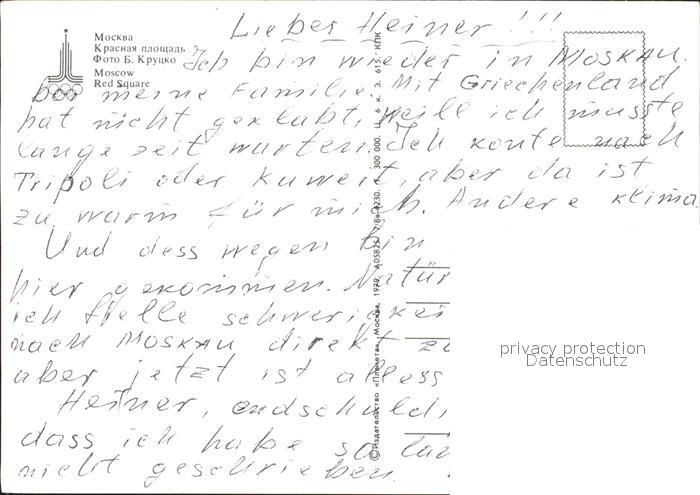 Москва
Красная площадь
Фото Б. Круцко
Moscow
Red Square
Lieber Heiner!!!
Ich bin wieder in MOSKAU.
bei meine Familie. Mit Griechenland
hat nicht geklabt, weill ich musste
lange zeit warten. Ich konte nach
Tripoli oder Kuweit, aber da ist
zu warm für mich. Andere klima
Und dess wegen bin
hier gekommen. Natür
ich fielle schwerigkei
nach MOSKAU direkt zu
aber jetzt ist alless
Heiner, endschuldi
dass ich habe so lan
nicht geschrieben.
© Издательство «Планета», Москва, 1979. 300 000. Ц. 6 к. З. 615. КПК
privacy protection
Datenschutz